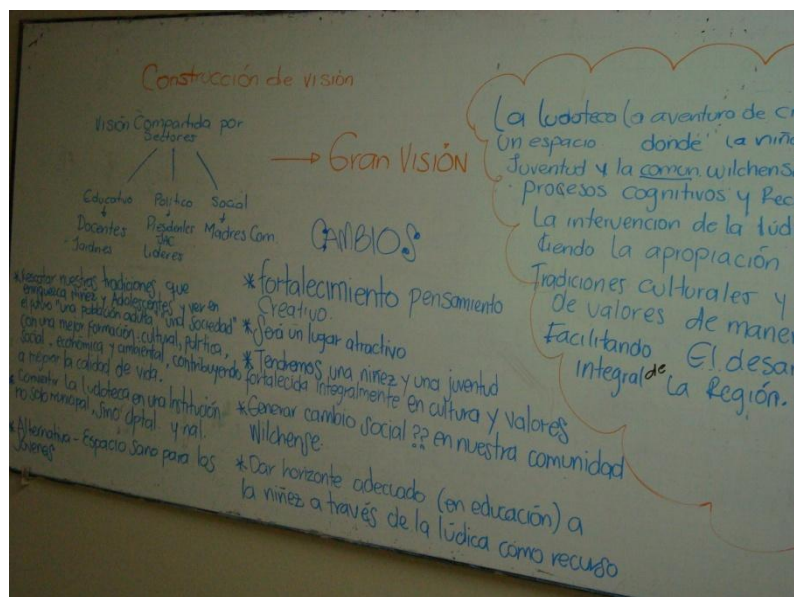 Construcción de visión
Visión Compartida por
Sectores
Educativo Político Social
Docentes Presidentes Madres Com.
Jardines JAC
Lideres
→ Gran VISIÓN
CAMBIOS
* Rescatar nuestras tradiciones, que
enriquezca niñez y Adolescentes y ver en
el futuro "una población adulta" "una sociedad"
con una mejor formación cultural, política,
social, económica y ambiental, contribuyendo
a mejor la calidad de vida.
* Convertir la Ludoteca en una Institución
no solo municipal, sino dptal y nal.
* Alternativa - Espacio Sano para los
Jóvenes
* fortalecimiento pensamiento
Creativo.
* Será un lugar atractivo
* Tendremos una niñez y una juventud
fortalecida integralmente en cultura y valores
* Generar cambio social ?? en nuestra comunidad
Wilchense.
* Dar horizonte adecuado (en educación) a
la niñez a través de la lúdica como recurso
La ludoteca la aventura de
un espacio donde la
Juventud y la comun. wilchens
procesos cognitivos y
La intervencion de la
tiendo la apropiación
Tradiciones culturales y
de valores de
Facilitando El
Integral de La Región.